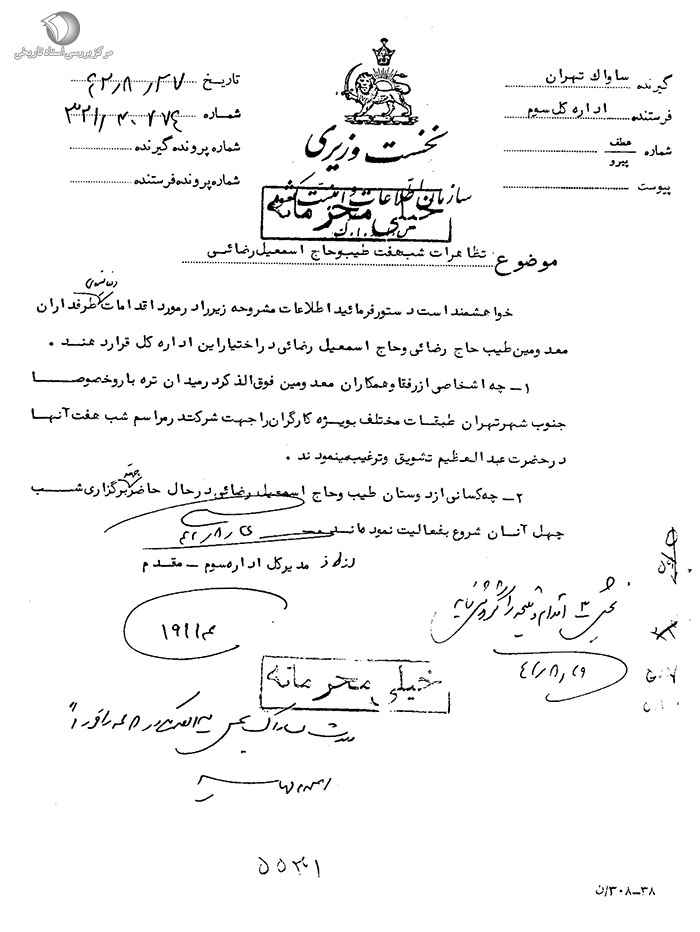 مرکز بررسی اسناد تاریخی
گیرنده ساواک تهران
فرستنده اداره کل سوم
شماره عطف پیرو
پیوست
نخست وزیری
سازمان اطلاعات و امنیت کشور
س.ا.و.ا.ک
خیلی محرمانه
تاریخ ۴۲/۸/۲۷
شماره ۳۲۱/۴۰۴۷۴
شماره پرونده گیرنده
شماره پرونده فرستنده
موضوع تظاهرات شب هفت طیب و حاج اسمعیل رضائی
خواهشمند است دستور فرمائید اطلاعات مشروحه زیر را در مورد اقدامات طرفداران
معدومین طیب حاج رضائی و حاج اسمعیل رضائی در اختیار این اداره کل قرار دهند .
۱ــ چه اشخاصی از رفقا و همکاران معدومین فوق الذکر در میدان تره بار و خصوصا
جنوب شهر تهران طبقات مختلف بویژه کارگران را جهت شرکت در مراسم شب هفت آنها
در حضرت عبدالعظیم تشویق و ترغیب مینمودند .
۲ــ چه کسانی از دوستان طیب و حاج اسمعیل رضائی در حال حاضر جهت برگزاری شب
چهل آنان شروع بفعالیت نموده اند
۴۲/۸/۲۶
مدیر کل اداره سوم ــ مقدم
بخش ۳ اقدام و نتیجه را گزارش نمایید
۴۲/۸/۲۹
۱۹۱۱
خیلی محرمانه
۵۵۳۱
۳۸ــ۳۰۸/ن